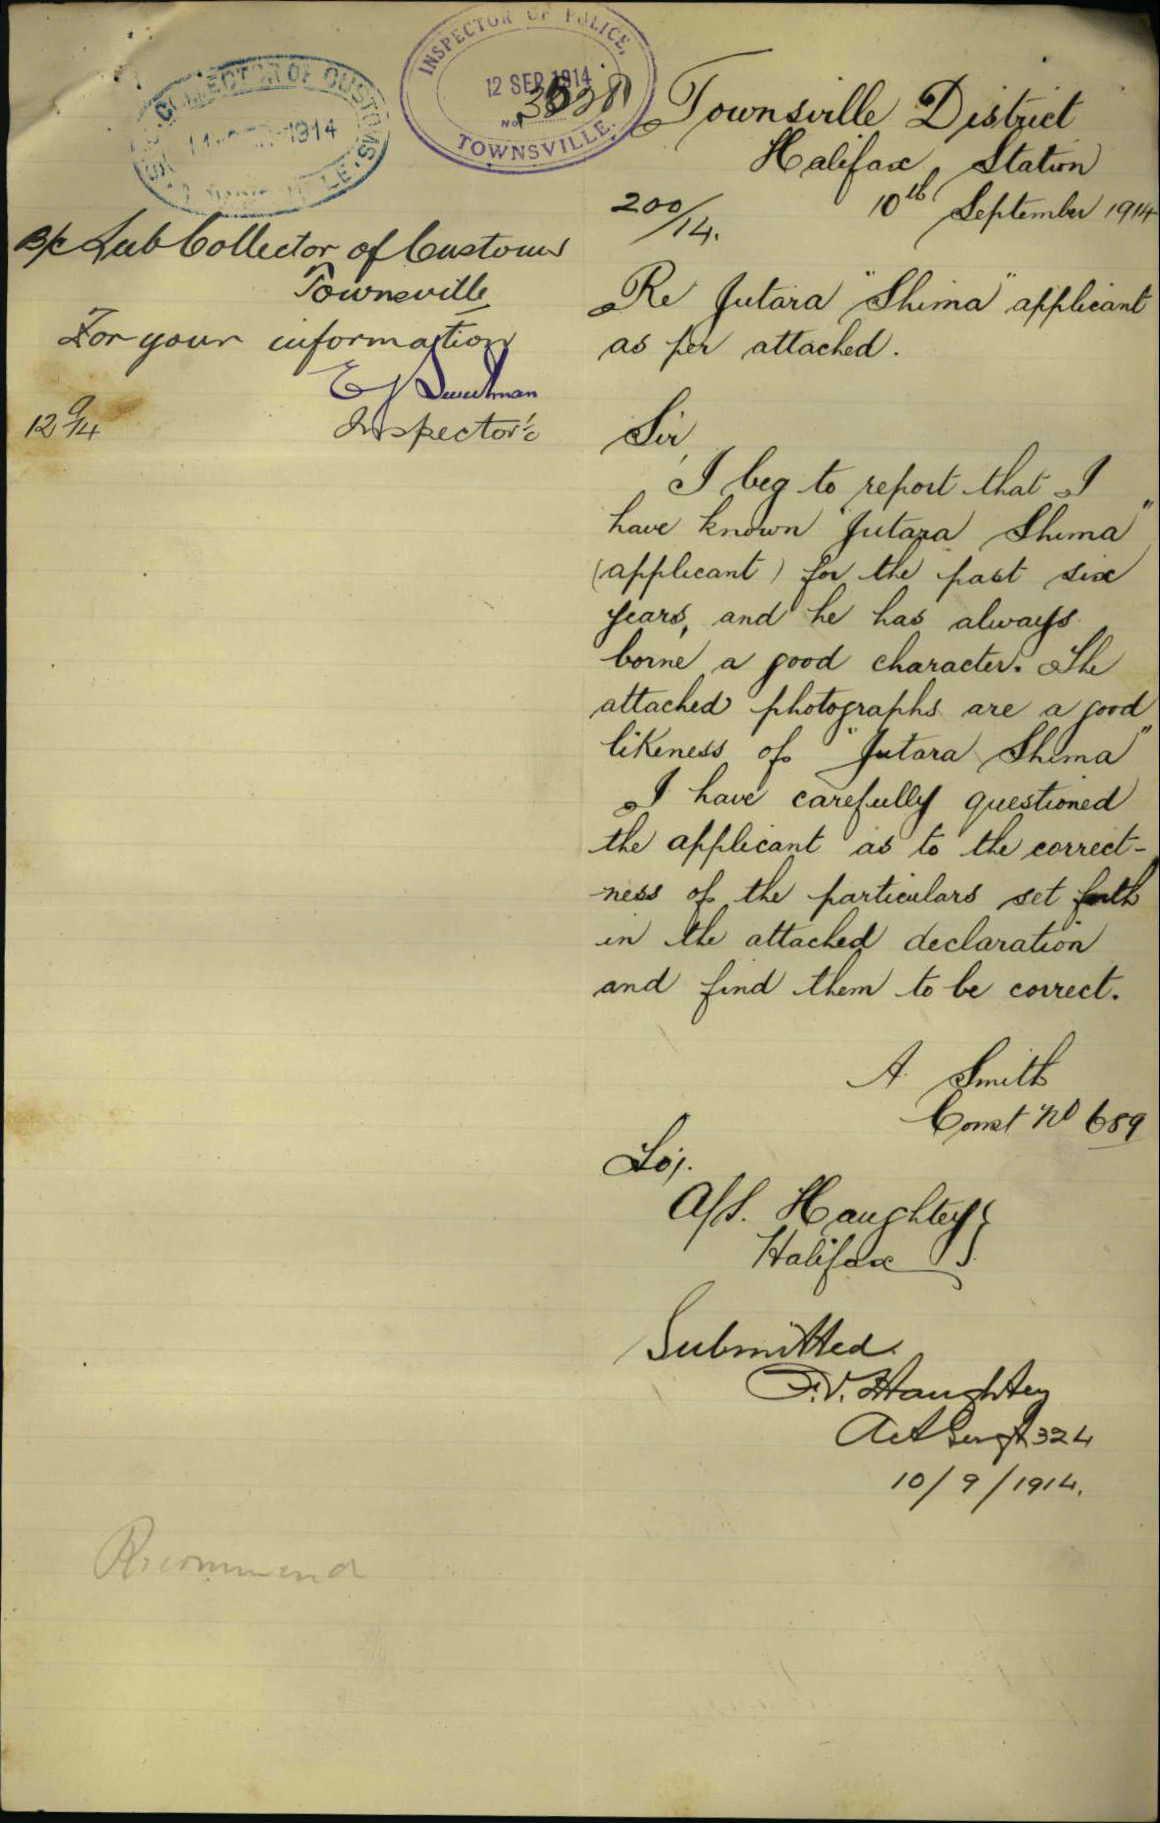 INSPECTOR OF POLICE,
12 SEP 1914
No.
TOWNSVILLE.
COLLECTOR OF CUSTOMS
1914
Townsville District
Halifax Station
200/14.
10th September 1914
B/c Sub Collector of Customs
Townsville
For your information
Inspector
12/9/14
Re Jutara "Shima" applicant
as per attached.
Sir,
I beg to report that I
have known "Jutara Shima"
(applicant) for the past six
years, and he has always
borne a good character. The
attached photographs are a good
likeness of "Jutara Shima"
I have carefully questioned
the applicant as to the correct-
ness of the particulars set forth
in the attached declaration
and find them to be correct.
A. Smith
Const No 689
A/S. Haughtey }
Halifax }
Submitted
F.V. Haughtey
Act Sergt 324
10/9/1914.
Recommend